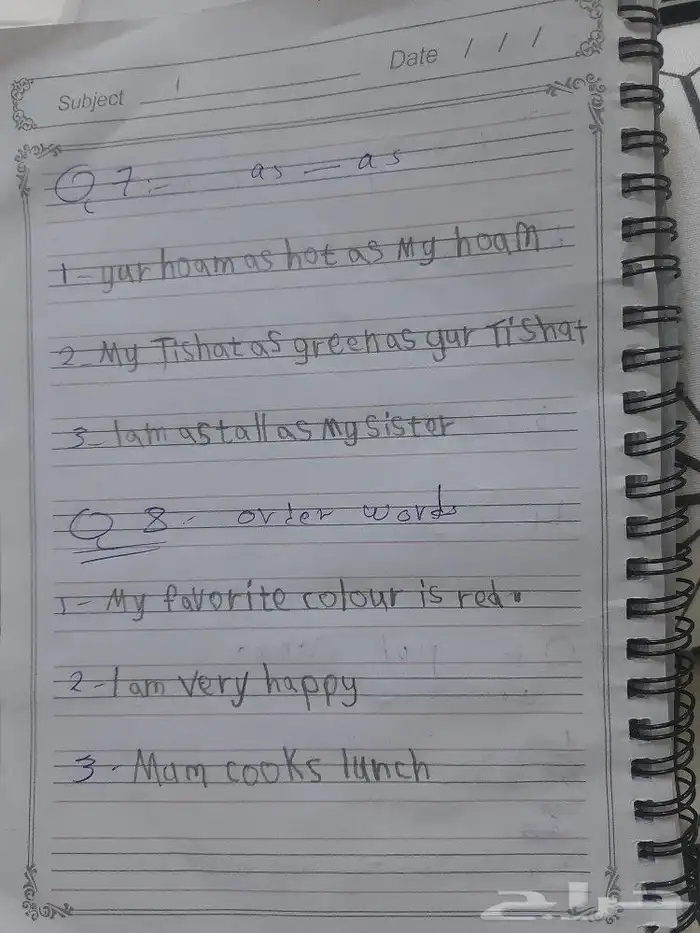 Subject
Date / / /
Q 7:- as — as
1- yur hoam as hot as My hoam
2- My Tishat as green as yur Tishat
3- I am as tall as My sister
Q 8:- order words
1- My favorite colour is red.
2- I am very happy
3- Mum cooks lunch
حراج